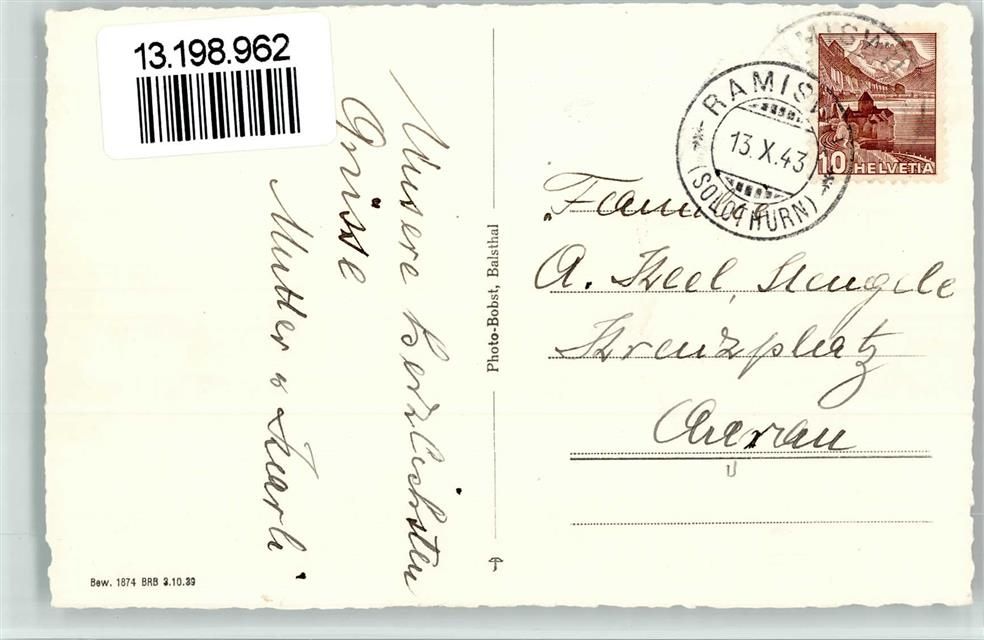 13.198.962
Unsere herzlichsten
Grüsse
Mutter u Karli
Bew. 1874 BRB 3.10.39
Photo-Bobst, Balsthal
RAMISWIL
RAMISWIL
13.X.43
(SOLOTHURN)
10 HELVETIA
Familie
A. Keel, Stengele
Kreuzplatz
Aarau